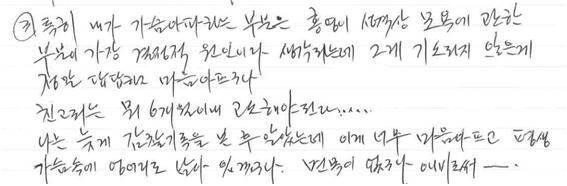 ③ 특히 내가 가슴아파하는 부분은 홍영이 성격상 모욕에 관한
부분이 가장 결정적 원인이라 생각하는데 그게 기소되지 않은게
정말 답답하고 마음아프구나
친고죄는 뭐 6개월이내 고소해야 한다.....
나는 늦게 감찰기록을 본 후 알았는데 이게 너무 마음아프고 평생
가슴속에 멍어리로 남아 있겠구나. 면목이 없구나 애비로서 —.